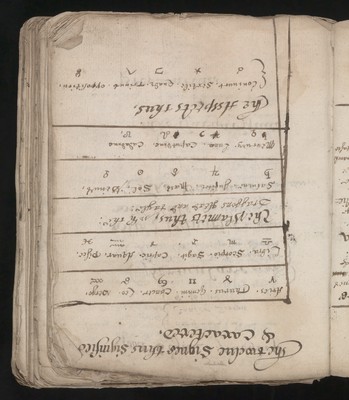 The twelue Signes thus Signified
& Caractered.
Aries. Taurus. Gemini. Cancer. Leo. Virgo.
♈ ♉ ♊ ♋ ♌ ♍
Libra. Scorpio. Sagit. Capric. Aquar. Pisce.
♎ ♏ ♐ ♑ ♒ ♓
The Plannets thus, with the
Draggons head and tayle.
Saturne. Jupiter. Mars. Sol. Venus.
♄ ♃ ♂ ☉ ♀
Mercury. Luna. Caput Dra. Cauda
☿ ☽ ☊ ☋
The Aspects thus.
Coniunct. Sextile. Quadr. Trinus. opposition.
☌ ⚹ □ △ ☍